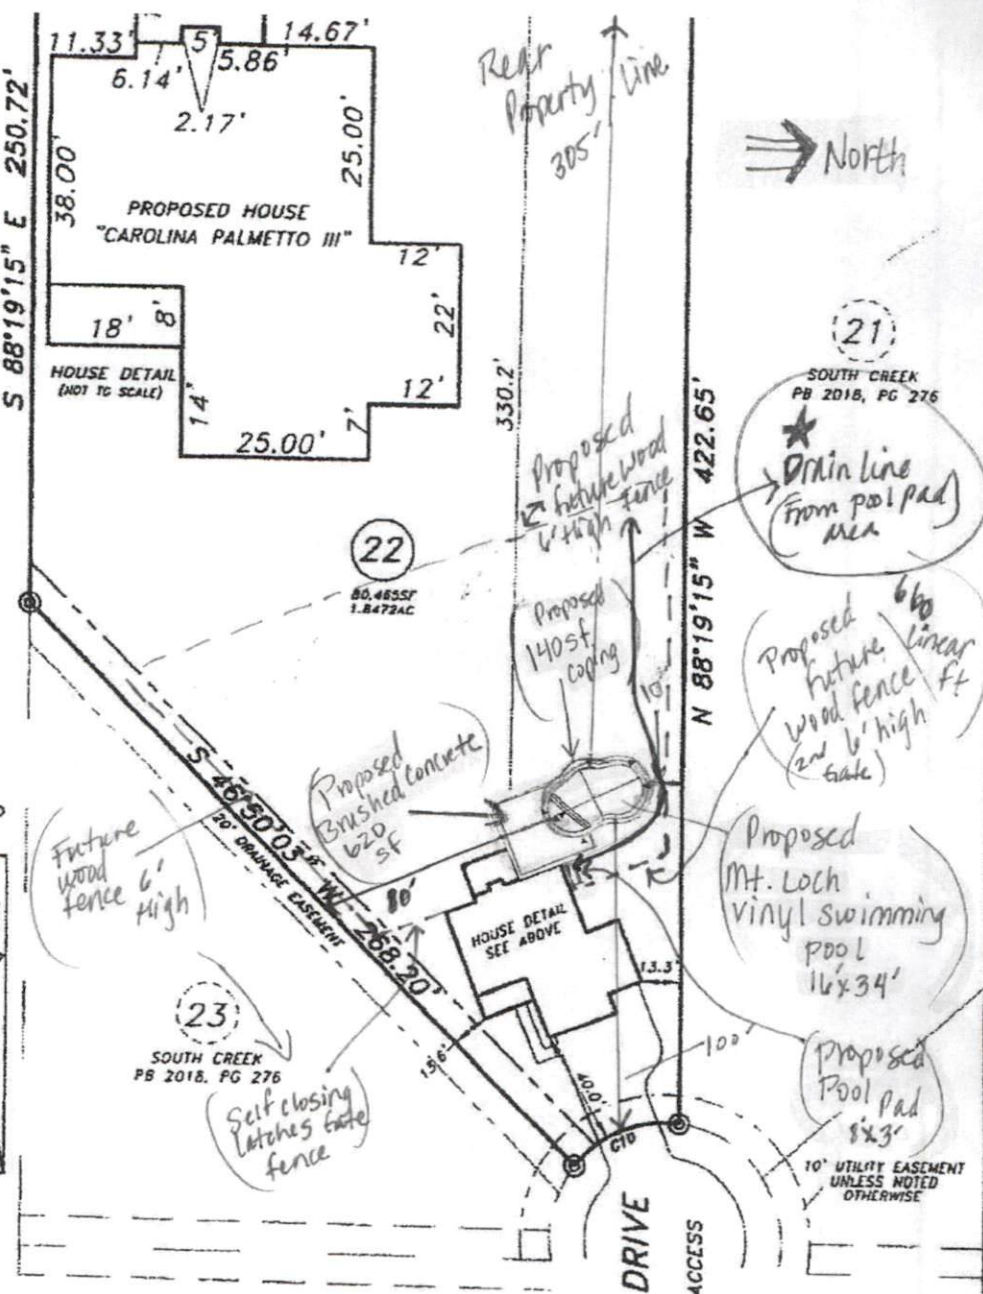 11.33'
5'
14.67'
6.14'
5.86'
2.17'
S 88°19'15" E 250.72'
38.00'
25.00'
PROPOSED HOUSE
"CAROLINA PALMETTO III"
12'
18'
8'
22'
HOUSE DETAIL
(NOT TO SCALE)
14'
12'
7'
25.00'
Rear
Property Line
305'
North
330.2'
21
SOUTH CREEK
PB 2018, PG 276
N 88°19'15" W 422.65'
★
Drain Line
(From pool pad)
area
Proposed
future wood
6' High fence
22
80,465SF
1.8472AC
Proposed
140 sf
coping
10'
Proposed
future
wood fence
(2nd 6' high
Gate)
660
linear
ft
Proposed
Brushed concrete
620
sf
S 46°50'03" W 268.20'
20' DRAINAGE EASEMENT
Future
wood
fence 6'
High
80'
HOUSE DETAIL
SEE ABOVE
Proposed
Mt. Loch
vinyl swimming
pool
16'x34'
13.3'
23
SOUTH CREEK
PB 2018, PG 276
Self closing
latches Gate
fence
40.0'
100
proposed
Pool Pad
8'x3'
C10
10' UTILITY EASEMENT
UNLESS NOTED
OTHERWISE
DRIVE
ACCESS